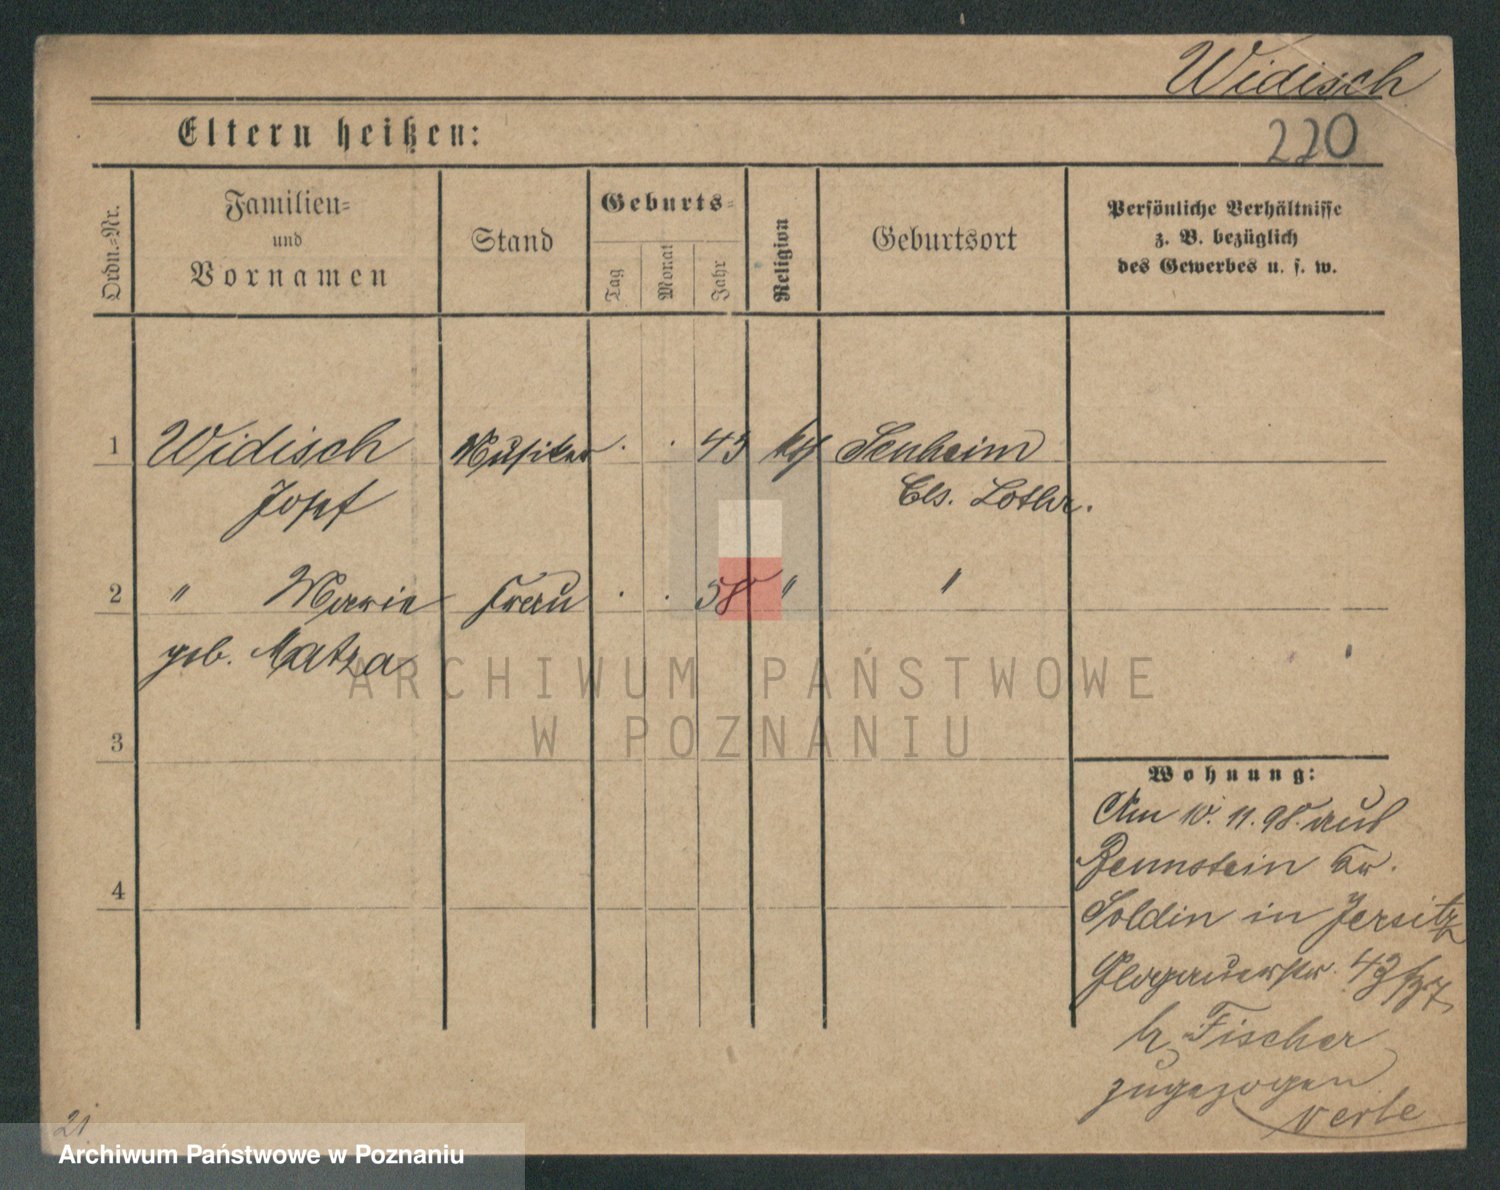 Widisch
Eltern heißen:
220
Ordn.=Nr.
Familien=
und
Vornamen
Stand
Geburts=
Tag
Monat
Jahr
Religion
Geburtsort
Persönliche Verhältnisse
z. B. bezüglich
des Gewerbes u. s. w.
1 Widisch Musiker . . 43 kth Senheim
Josef Els. Lothr.
2 " Marie Frau . . 58 " "
geb. Matza
3
4
Wohnung:
Am 10. 11. 98. aus
Bennstein Kr.
Soldin in Jersitz
Glogauerstr. 43
b. Fischer
zugezogen
21
ARCHIWUM PAŃSTWOWE
W POZNANIU
Archiwum Państwowe w Poznaniu